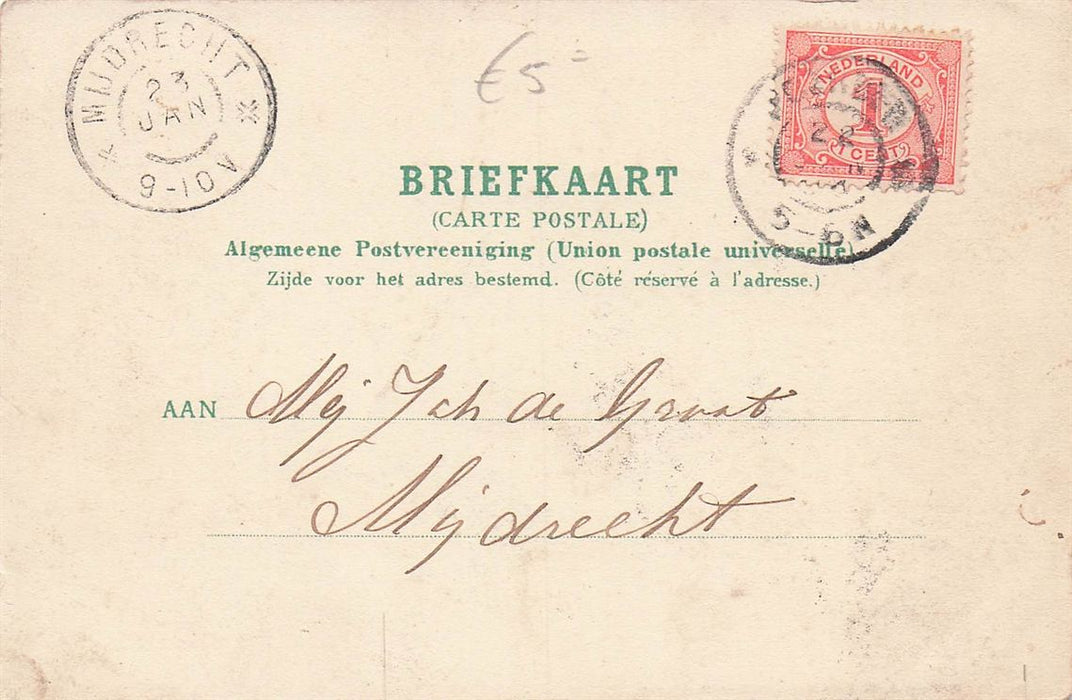 MIJDRECHT
23
JAN
9-10V
£5-
NEDERLAND
1
CENT
22
5-6N
BRIEFKAART
(CARTE POSTALE)
Algemeene Postvereeniging (Union postale universelle)
Zijde voor het adres bestemd. (Côté réservé à l'adresse.)
AAN Mej Joh de Graat
Mijdrecht